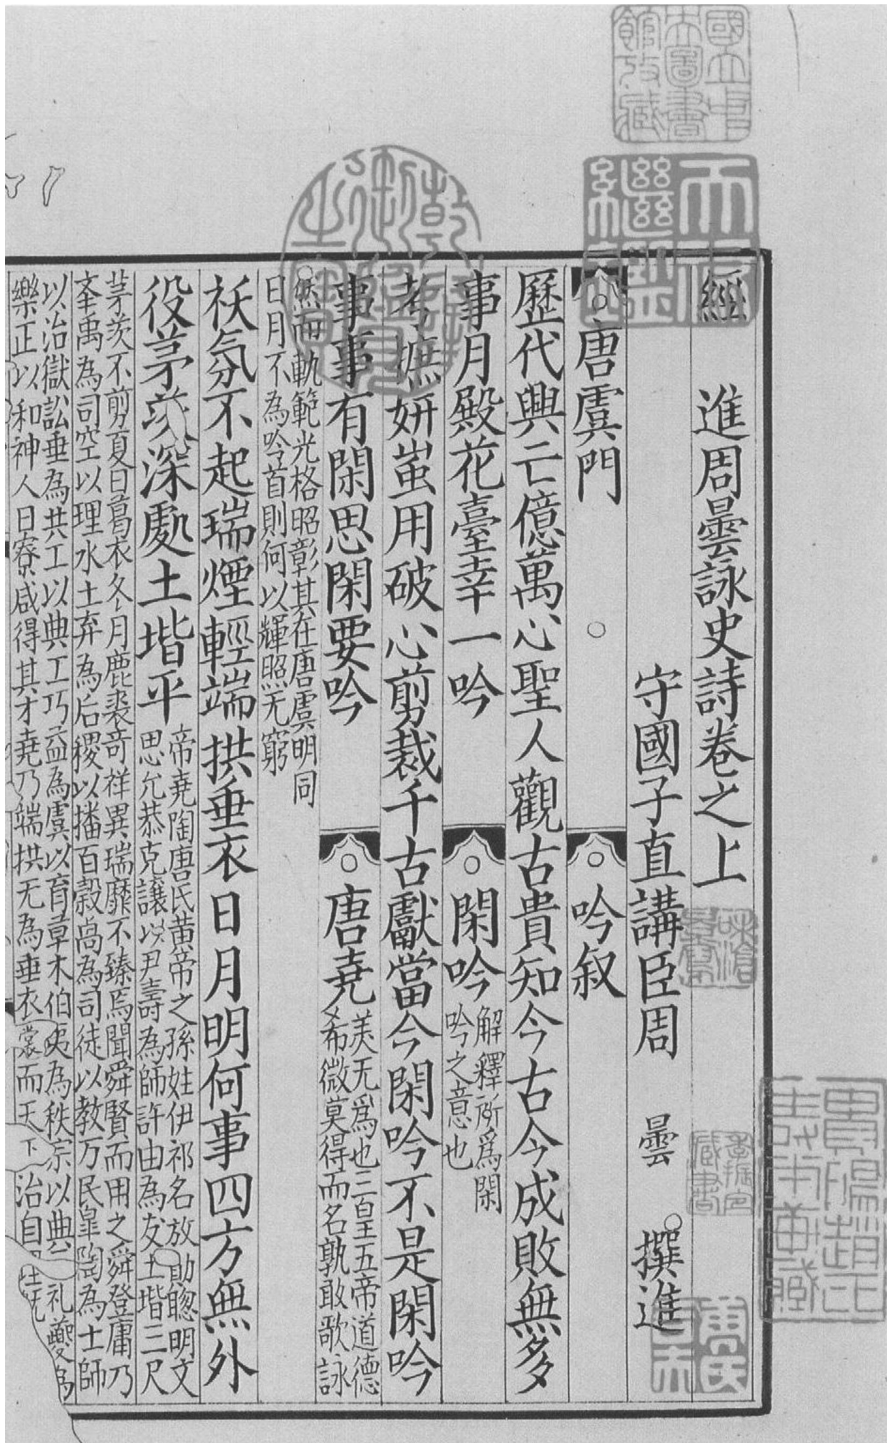 經進周曇詠史詩卷之上
守國子直講臣周 曇 撰進
唐虞門 吟叙
歷代興亡億萬心聖人觀古貴知今古今成敗無多
事月殿花臺幸一吟 閑吟 解釋所爲閑
吟之意也
考摭妍蚩用破心剪裁千古獻當今閑吟不是閑吟
事事有閑思閑要吟 唐堯 美无爲也三皇五帝道德
希微莫得而名孰敢歌詠
然而軌範光格昭彰其在唐虞明同
日月不為吟首則何以輝照无窮
祅氛不起瑞煙輕端拱垂衣日月明何事四方無外
役茅茨深處土堦平 帝堯陶唐氏黄帝之孫姓伊祁名放勛聦明文
思允恭克讓以尹壽為師許由為友土堦三尺
茅茨不剪夏日葛衣冬月鹿裘奇祥異瑞靡不臻焉聞舜賢而用之舜登庸乃
奉禹為司空以理水土弃為后稷以播百穀卨為司徒以教万民皐陶為士師
以治獄訟垂為共工以典工巧益為虞以育草木伯夷為秩宗以典 礼夔為
樂正以和神人日寮咸得其才堯乃端拱无為垂衣裳而天下治自
國立中央圖書館收藏
天禄繼鑑
乾隆御覽之寶